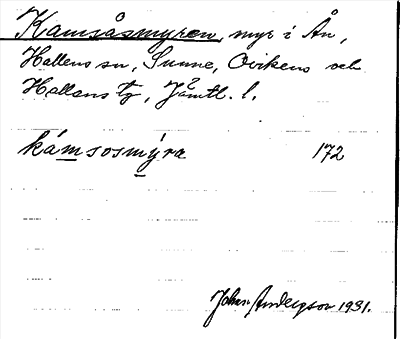 Kamsåsmyren, myr i Ån,
Hallens sn, Sunne, Ovikens och
Hallens tg, Jämtl. l.
kámsosmýra 172
John Andersson 1931.